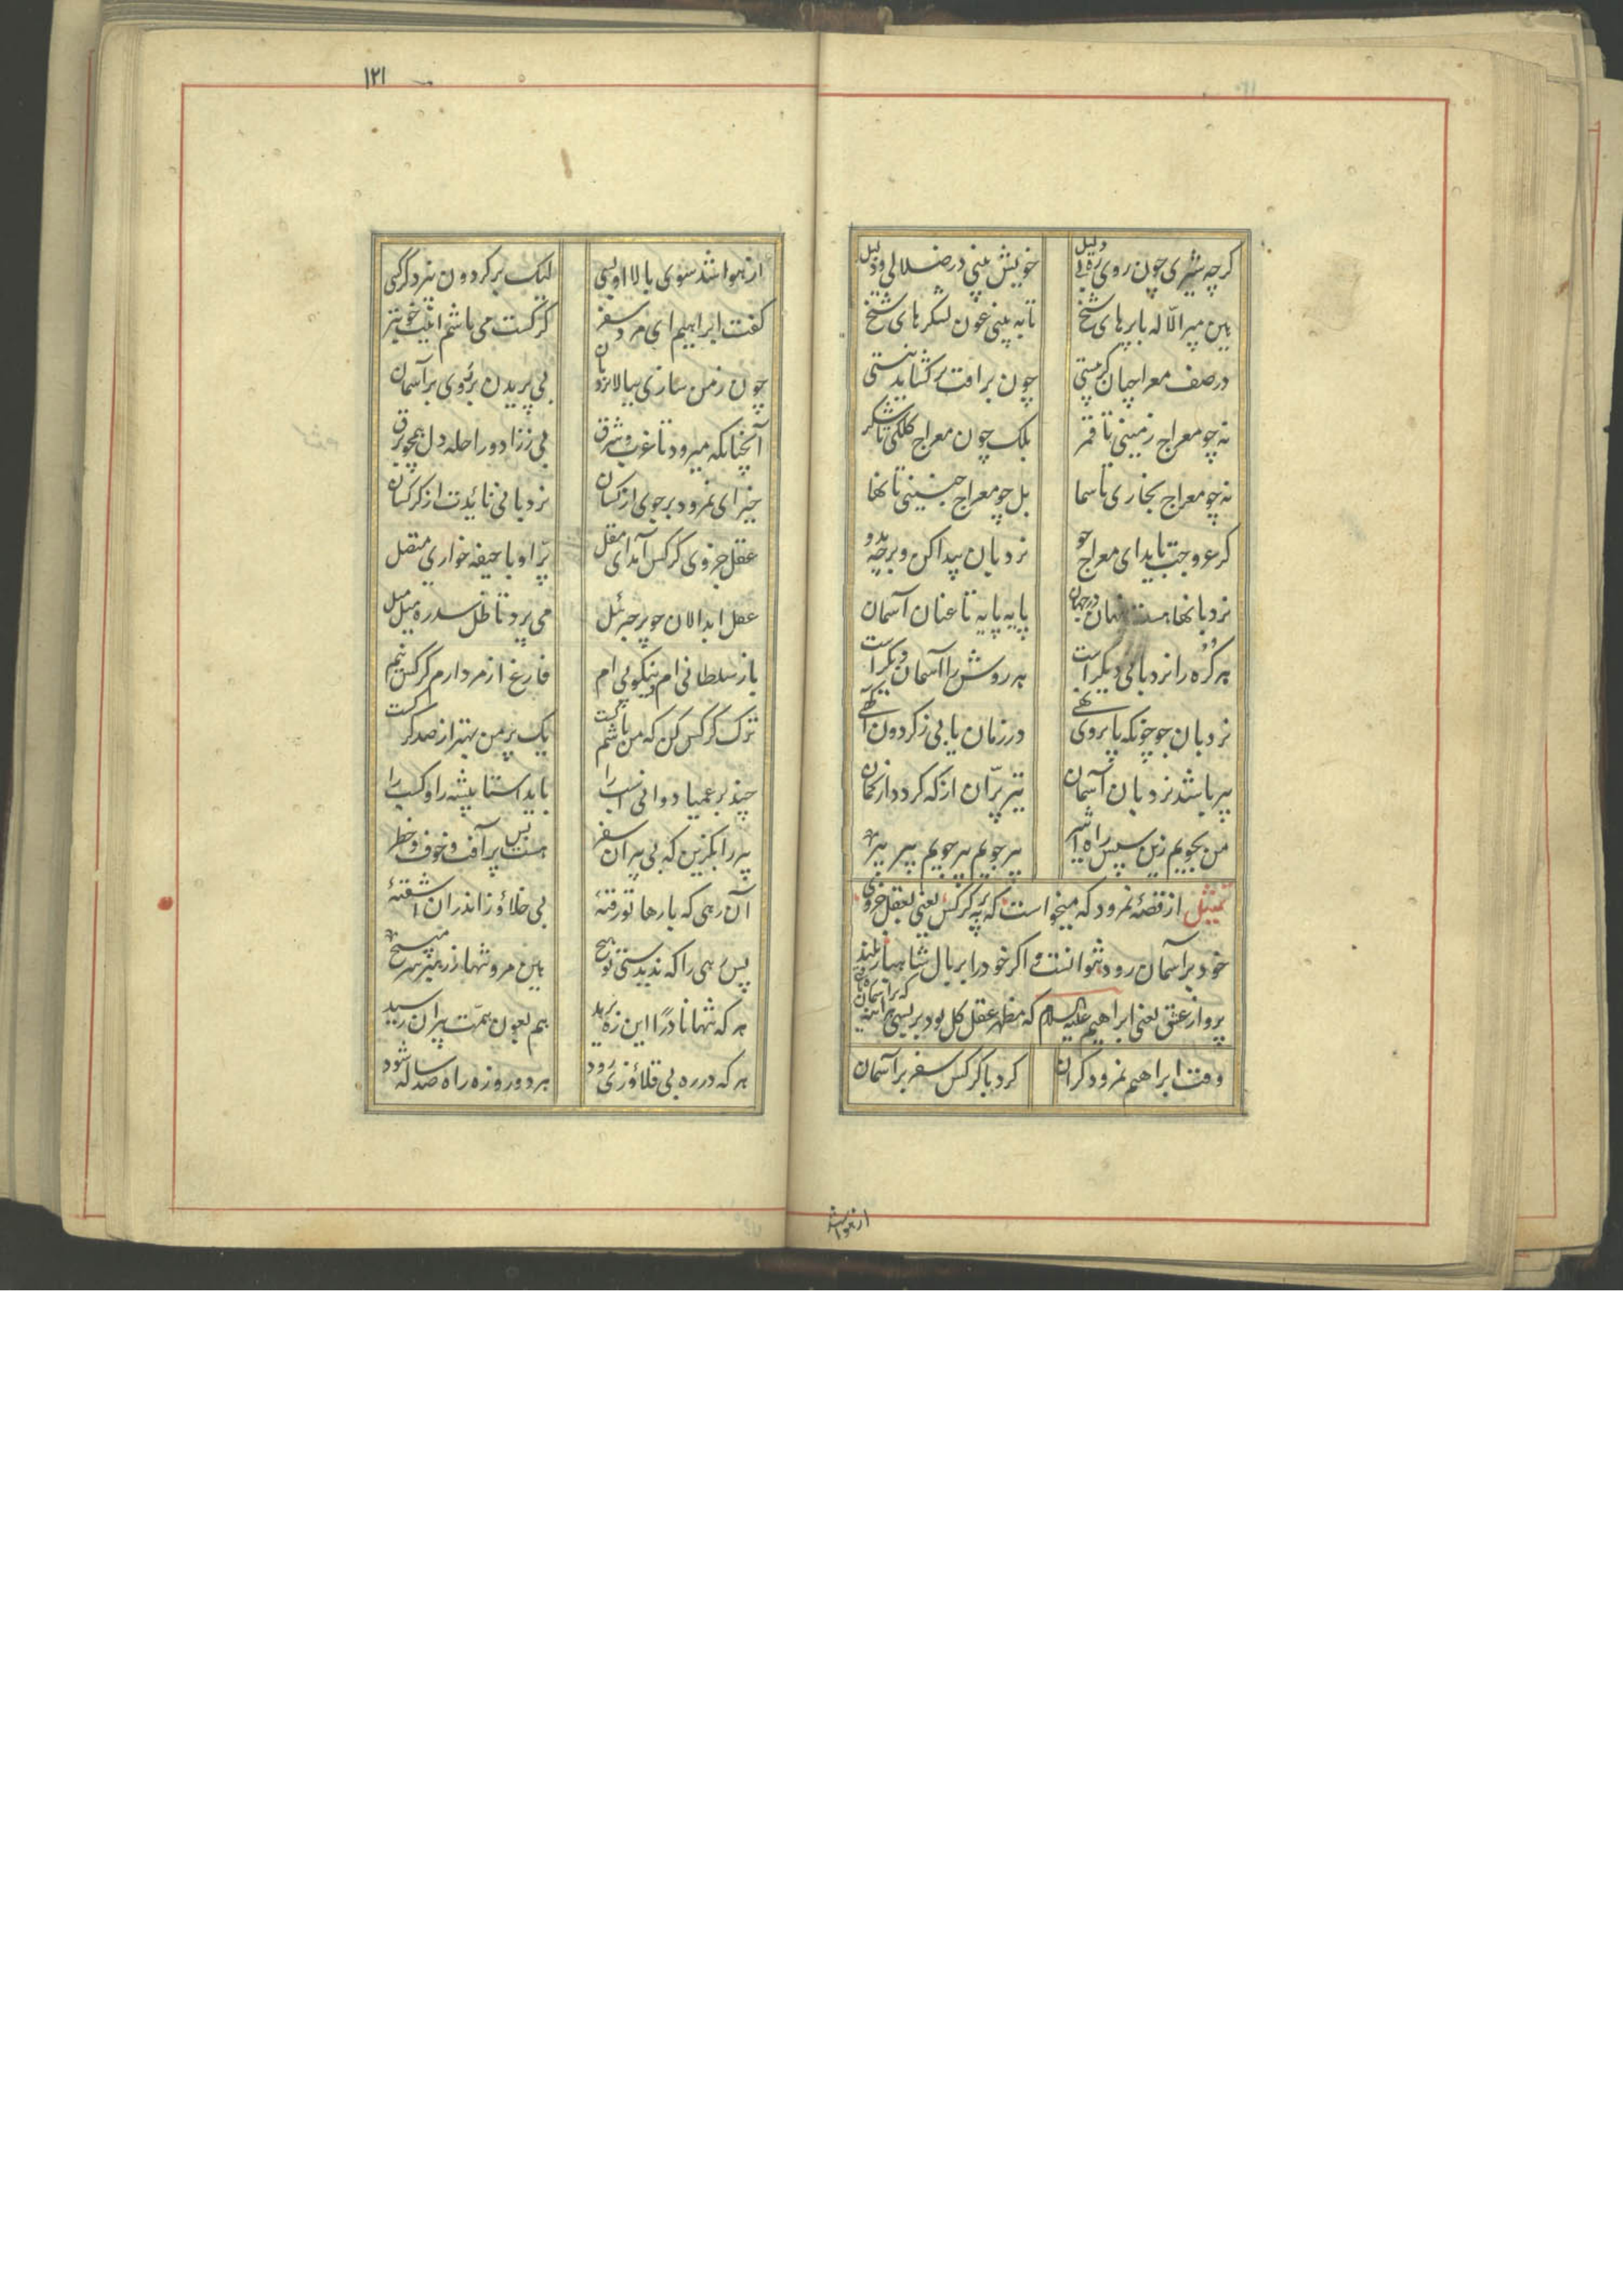 گرچه شیری چون روی ره بی دلیل
خویش بینی در ضلالی و ذلیل
هین مپر الا که با پرهای شیخ
تا به بینی عون لشکرهای شیخ
در صف معراجیان گر بیستی
چون براقت بر کشاید نیستی
نه چو معراج زمینی تا قمر
بلک چون معراج کلکی تا شکر
نه چو معراج بخاری تا سما
بل چو معراج جنینی تا نها
گر عروجت باید ای معراج جو
نردبان پیدا کن و بر چه بدو
نردبانها هست پنهان در جهان
پایه پایه تا عنان آسمان
هر گره را نردبانی دیگر است
هر روش را آسمان دیگر است
نردبان جو چونکه پا بروی نهی
در زمان یابی ز گردون آگهی
پیر باشد نردبان آسمان
تیر پران از که گردد از کمان
من بجویم زین سپس راه اثیر
پیر جویم پیر جویم پیر پیر
تمثیل از قصه نمرود که میخواست که به پر کرکس یعنی بعقل جزوی
خود بر آسمان رود نتوانست و اگر خود را بر بال شاهباز بلند
پرواز عشق یعنی ابراهیم علیه السلام که مظهر عقل کل بود بر بستی هر آینه که بر آسمان
وقت ابراهیم نمرود گران
کرد با کرکس سفر بر آسمان
از هوا شد
۱۲۱
از هوا شد سوی بالا او بسی
لیک بر گردون نپرد کرکسی
گفت ابراهیم ای مرد سفر
کرکست می باشم اینت خوبتر
چون ز من سازی ببالا نردبان
بی پریدن بر روی بر آسمان
آنچنانکه میرود تا غرب و شرق
بی ز زاد و راحله دل همچو برق
خیز ای نمرود بر جوی از کسان
نردبانی نائدت از کرکسان
عقل جزوی کرکس آمد ای مقل
پر او با جیفه خواری متصل
عقل ابدالان چو پر جبرئل
می پرد تا ظل سدره میل میل
باز سلطانی ام و نیکوئی ام
فارغ از مردارم کرکس نیم
ترک کرکس کن که من باشم کست
یک پر من بهتر از صد کرکست
چند بر عمیا دوانی اسب را
باید استا پیشه را و کسب را
پیر را بگزین که بی پیر آن سفر
هست بس پر آفت و خوف و خطر
آن رهی که بارها تو رفتهٔ
بی خلاؤز اندران آشفتهٔ
پس رهی را که ندیدستی تو هیچ
هین مرو تنها ز رهبر سر مپیچ
هر که تنها نادرا این ره برید
هم بعون همت پیران رسید
هر که در ره بی قلاؤزی رود
هر دو روزه راه صد ساله شود